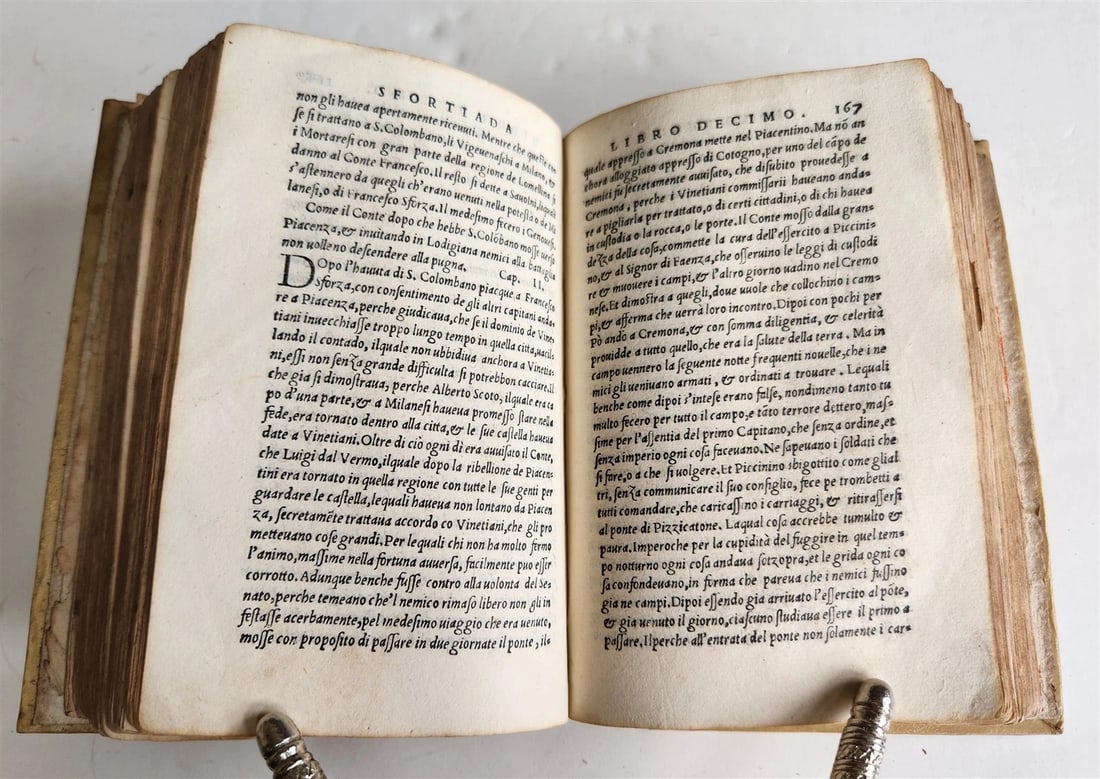 SFORTIADA
non gli hauea apertamente riceuuti. Mentre che queste co
se si trattano a S.Colombano, li Vigeuenaschi a Milano, &
i Mortaresi con gran parte della regione de Lomellina si
danno al Conte Francesco. Il resto si dette a Sauoini, liquali
s'astennero da quegli ch'erano uenuti nella potestà o de Mi
lanesi, o di Francesco Sforza. Il medesimo fecero i Genouesi.
Come il Conte dopo che hebbe S.Colõbano mosse uerso
Piacenza, & inuitando in Lodigiana nemici alla battaglia
non uolleno descendere alla pugna. Cap. II.
DOpo l'hauuta di S. Colombano piacque a Francesco
sforza, con consentimento de gli altri capitani anda-
re a Piacenza, perche giudicaua, che se il dominio de Vine
tiani inuecchiasse troppo lungo tempo in quella citta, uacil
lando il contado, ilquale non ubbidiua anchora a Vinetia-
ni, essi non senza grande difficulta si potrebbon cacciare. Il
che gia si dimostraua, perche Alberto Scoto, ilquale era ca
po d'una parte, & a Milanesi haueua promesso stare nella
fede, era tornato dentro alla citta, & le sue castella haueua
date a Vinetiani. Oltre di ciò ogni dì era auuisato il Conte,
che Luigi dal Vermo, ilquale dopo la ribellione de Piacen
tini era tornato in quella regione con tutte le sue genti per
guardare le castella, lequali haueua non lontano da Piacen
za, secretamẽte trattaua accordo co Vinetiani, che gli pro
metteuano cose grandi. Per lequali chi non ha molto fermo
l'animo, massime nella fortuna auuersa, facilmente puo essir
corrotto. Adunque benche fusse contro alla uolonta del Se-
nato, perche temeano che'l nemico rimaso libero non gli in
festasse acerbamente, pel medesimo uiaggio che era uenuto,
mosse con proposito di passare in due giornate il ponte, il-
LIBRO DECIMO. 167
quale appresso a Cremona mette nel Piacentino. Ma nõ an
chora alloggiato appresso di Cotogno, per uno del cãpo de
nemici fu secretamente auuisato, che disubito prouedesse a
Cremona, perche i Vinetiani commissarii haueano anda-
re a pigliarla per trattato, o di certi cittadini, o di chi hauea
in custodia o la rocca, o le porte. Il Conte mosso dalla gran-
dezza della cosa, commette la cura dell'essercito a Piccini-
no, & al Signor di Faenza, che osseruino le leggi di custodi
re & muouere i campi, & l'altro giorno uadino nel Cremo
nese. Et dimostra a quegli, doue uuole che collochino i cam-
pi, & afferma che uerrà loro incontro. Dipoi con pochi per
pò andò a Cremona, & con somma diligentia, & celerità
prouidde a tutto quello, che era la salute della terra. Ma in
campo uennero la seguente notte frequenti nouelle, che i ne
mici gli ueniuano armati, & ordinati a trouare. Lequali
benche come dipoi s'intese erano false, nondimeno tanto tu
multo fecero per tutto il campo, e tãto terrore dettero, mas-
sime per l'assentia del primo Capitano, che senza ordine, et
senza imperio ogni cosa faceuano. Ne sapeuano i soldati che
si fare, o a che si uolgere. Et Piccinino sbigottito come glial
tri, senza communicare il suo consiglio, fece pe trombetti a
tutti comandare, che caricassino i carriaggi, & ritirassersi
al ponte di Pizzicatone. Laqual cosa accrebbe tumulto &
paura. Imperoche per la cupidità del fuggire in quel tem-
po notturno ogni cosa andaua sotzopra, et le grida ogni co
sa confondeuano, in forma che pareua che i nemici fussino
gia ne campi. Dipoi essendo gia arriuato l'essercito al põte,
& gia uenuto il giorno, ciascuno studiaua essere il primo a
passare. Il perche all'entrata del ponte non solamente i car-